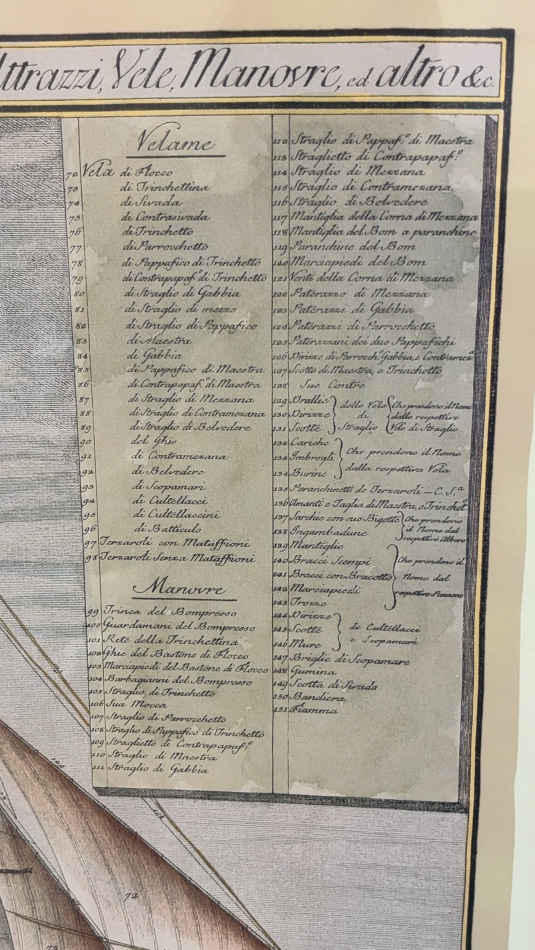 Attrazzi, Vele, Manovre, ed altro &c
Velame
72 Vela di Flocco
73 di Trinchettina
74 di Sivada
75 di Contrasivada
76 di Trinchetto
77 di Parrocchetto
78 di Pappafico di Trinchetto
79 di Contrapapaf.º di Trinchetto
80 di Straglio di Gabbia
81 di Straglio di mezzo
82 di Straglio di Pappafico
83 di Maestra
84 di Gabbia
85 di Pappafico di Maestra
86 di Contrapapaf.º di Maestra
87 di Straglio di Mezzana
88 di Straglio di Contramezana
89 di Straglio di Belvedere
90 del Ghio
91 di Contramezana
92 di Belvedere
93 di Scopamari
94 di Cultellacci
95 di Cultellaccini
96 di Batticulo
97 Terzaroli con Mataffioni
98 Terzaroli Senza Mataffioni
Manovre
99 Trinca del Bompresso
100 Guardamani del Bompresso
101 Rete della Trinchettina
102 Ghie del Bastone di Flocco
103 Marciapiedi del Bastone di Flocco
104 Barbagianni del Bompresso
105 Straglio di Trinchetto
106 Sua Mocca
107 Straglio di Parrocchetto
108 Straglio di Pappafico di Trinchetto
109 Straglietto di Contrapapaf.º
110 Straglio di Maestra
111 Straglio di Gabbia
112 Straglio di Pappaf.º di Maestra
113 Straglietto di Contrapapaf.º
114 Straglio di Mezzana
115 Straglio di Contramezana
116 Straglio di Belvedere
117 Mantiglia della Corna di Mezzana
118 Mantiglia del Bom a paranchino
119 Paranchino del Bom
120 Marciapiedi del Bom
121 Venti della Corna di Mezzana
122 Paterazzo di Mezzana
123 Paterazzi di Gabbia
124 Paterazzi di Parrocchetto
125 Paterazzini dei due Pappafichi
126 Virizzo di Parrocch.º Gabbia, e
127 Scotte di Maestra, e Trinchetto
128 Sue Contre
129 Drallie
130 Virizze
131 Scotte
delle Vele di Straglio
Che prendono il Nome dalle rispettive Vele di Straglio
132 Cariche
133 Imbrogli
134 Burine
Che prendono il Nome dalla respettiva Vela
135 Paranchinetti de Terzaroli - C.S.ª
136 Amanti e Taglie di Maestra, e Trinchet.º
137 Sarchie con suo Bigotte
138 Ingambadure
Che prendono il Nome dal respettivo Albero
139 Mantiglie
140 Bracci Scempi
141 Bracci con Bracotto
142 Marciapiedi
143 Trozze
Che prendono il Nome dal respettivo Pennone
144 Virizze
145 Scotte
146 Mure
di Cultellacci e Scopamari
147 Briglie di Scopamare
148 Gumina
149 Scotta di Sivada
150 Bandiera
151 Fiamma
72
73